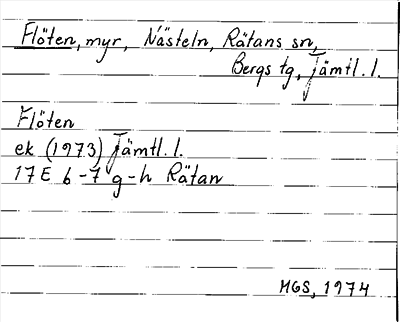 Flöten, myr, Nästeln, Rätans sn,
Bergs tg, Jämtl. l.
Flöten
ek (1973) Jämtl. l.
17 E 6-7 g-h Rätan
MGS, 1974